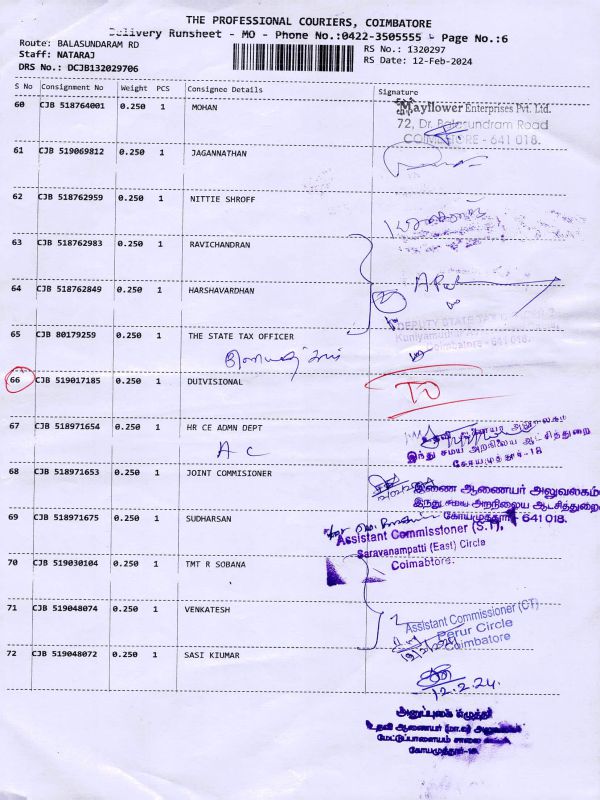 THE PROFESSIONAL COURIERS, COIMBATORE
Delivery Runsheet - MO - Phone No.:0422-3505555 Page No.:6
Route: BALASUNDARAM RD
Staff: NATARAJ
DRS No.: DCJB132029706
RS No.: 1320297
RS Date: 12-Feb-2024
S No Consignment No Weight PCS Consignee Details Signature
60 CJB 518764001 0.250 1 MOHAN
Mayflower Enterprises Pvt. Ltd.
72, Dr. Balasundram Road
COIMBATORE - 641 018.
61 CJB 519069812 0.250 1 JAGANNATHAN
62 CJB 518762959 0.250 1 NITTIE SHROFF
63 CJB 518762983 0.250 1 RAVICHANDRAN
64 CJB 518762849 0.250 1 HARSHAVARDHAN
65 CJB 80179259 0.250 1 THE STATE TAX OFFICER
DEPUTY STATE TAX
Coimbatore - 641 018.
66 CJB 519017185 0.250 1 DUIVISIONAL
TO
67 CJB 518971654 0.250 1 HR CE ADMN DEPT
A C
இந்து சமய அறநிலைய ஆட்சித்துறை
கோயமுத்தூர்-18
68 CJB 518971653 0.250 1 JOINT COMMISIONER
இணை ஆணையர் அலுவலகம்
இந்து சமய அறநிலைய ஆட்சித்துறை
கோயமுத்தூர் 641 018.
69 CJB 518971675 0.250 1 SUDHARSAN
Assistant Commissioner (S.T),
Saravanampatti (East) Circle
Coimabtore.
70 CJB 519030104 0.250 1 TMT R SOBANA
71 CJB 519048074 0.250 1 VENKATESH
Assistant Commissioner (CT)
Perur Circle
Coimbatore
72 CJB 519048072 0.250 1 SASI KIUMAR
12.2.24.
உதவி ஆணையர்
மேட்டுப்பாளையம் சாலை
கோயமுத்தூர்-18